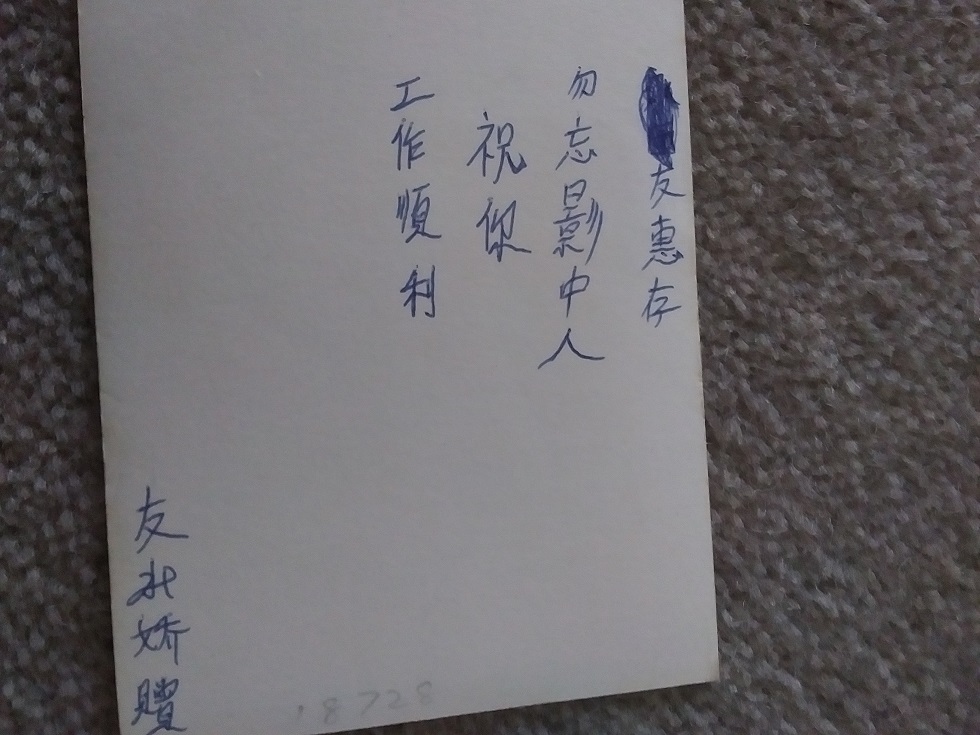 友惠存
勿忘影中人
祝你
工作順利
友 娇贈
18728